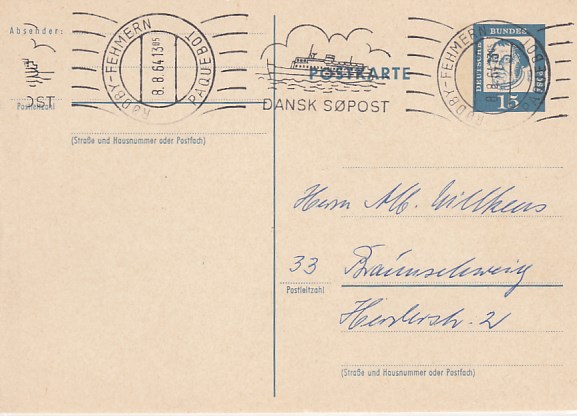 Absender:
RØDBY-FEHMERN
8.8.64 13
PAQUEBOT
POSTKARTE
DANSK SØPOST
RØDBY-FEHMERN
DEUTSCHE BUNDESPOST
15
ØST
Postleitzahl
(Straße und Hausnummer oder Postfach)
Herrn Alb. Willkens
33 Braunschweig
Postleitzahl
Herderstr. 21
(Straße und Hausnummer oder Postfach)